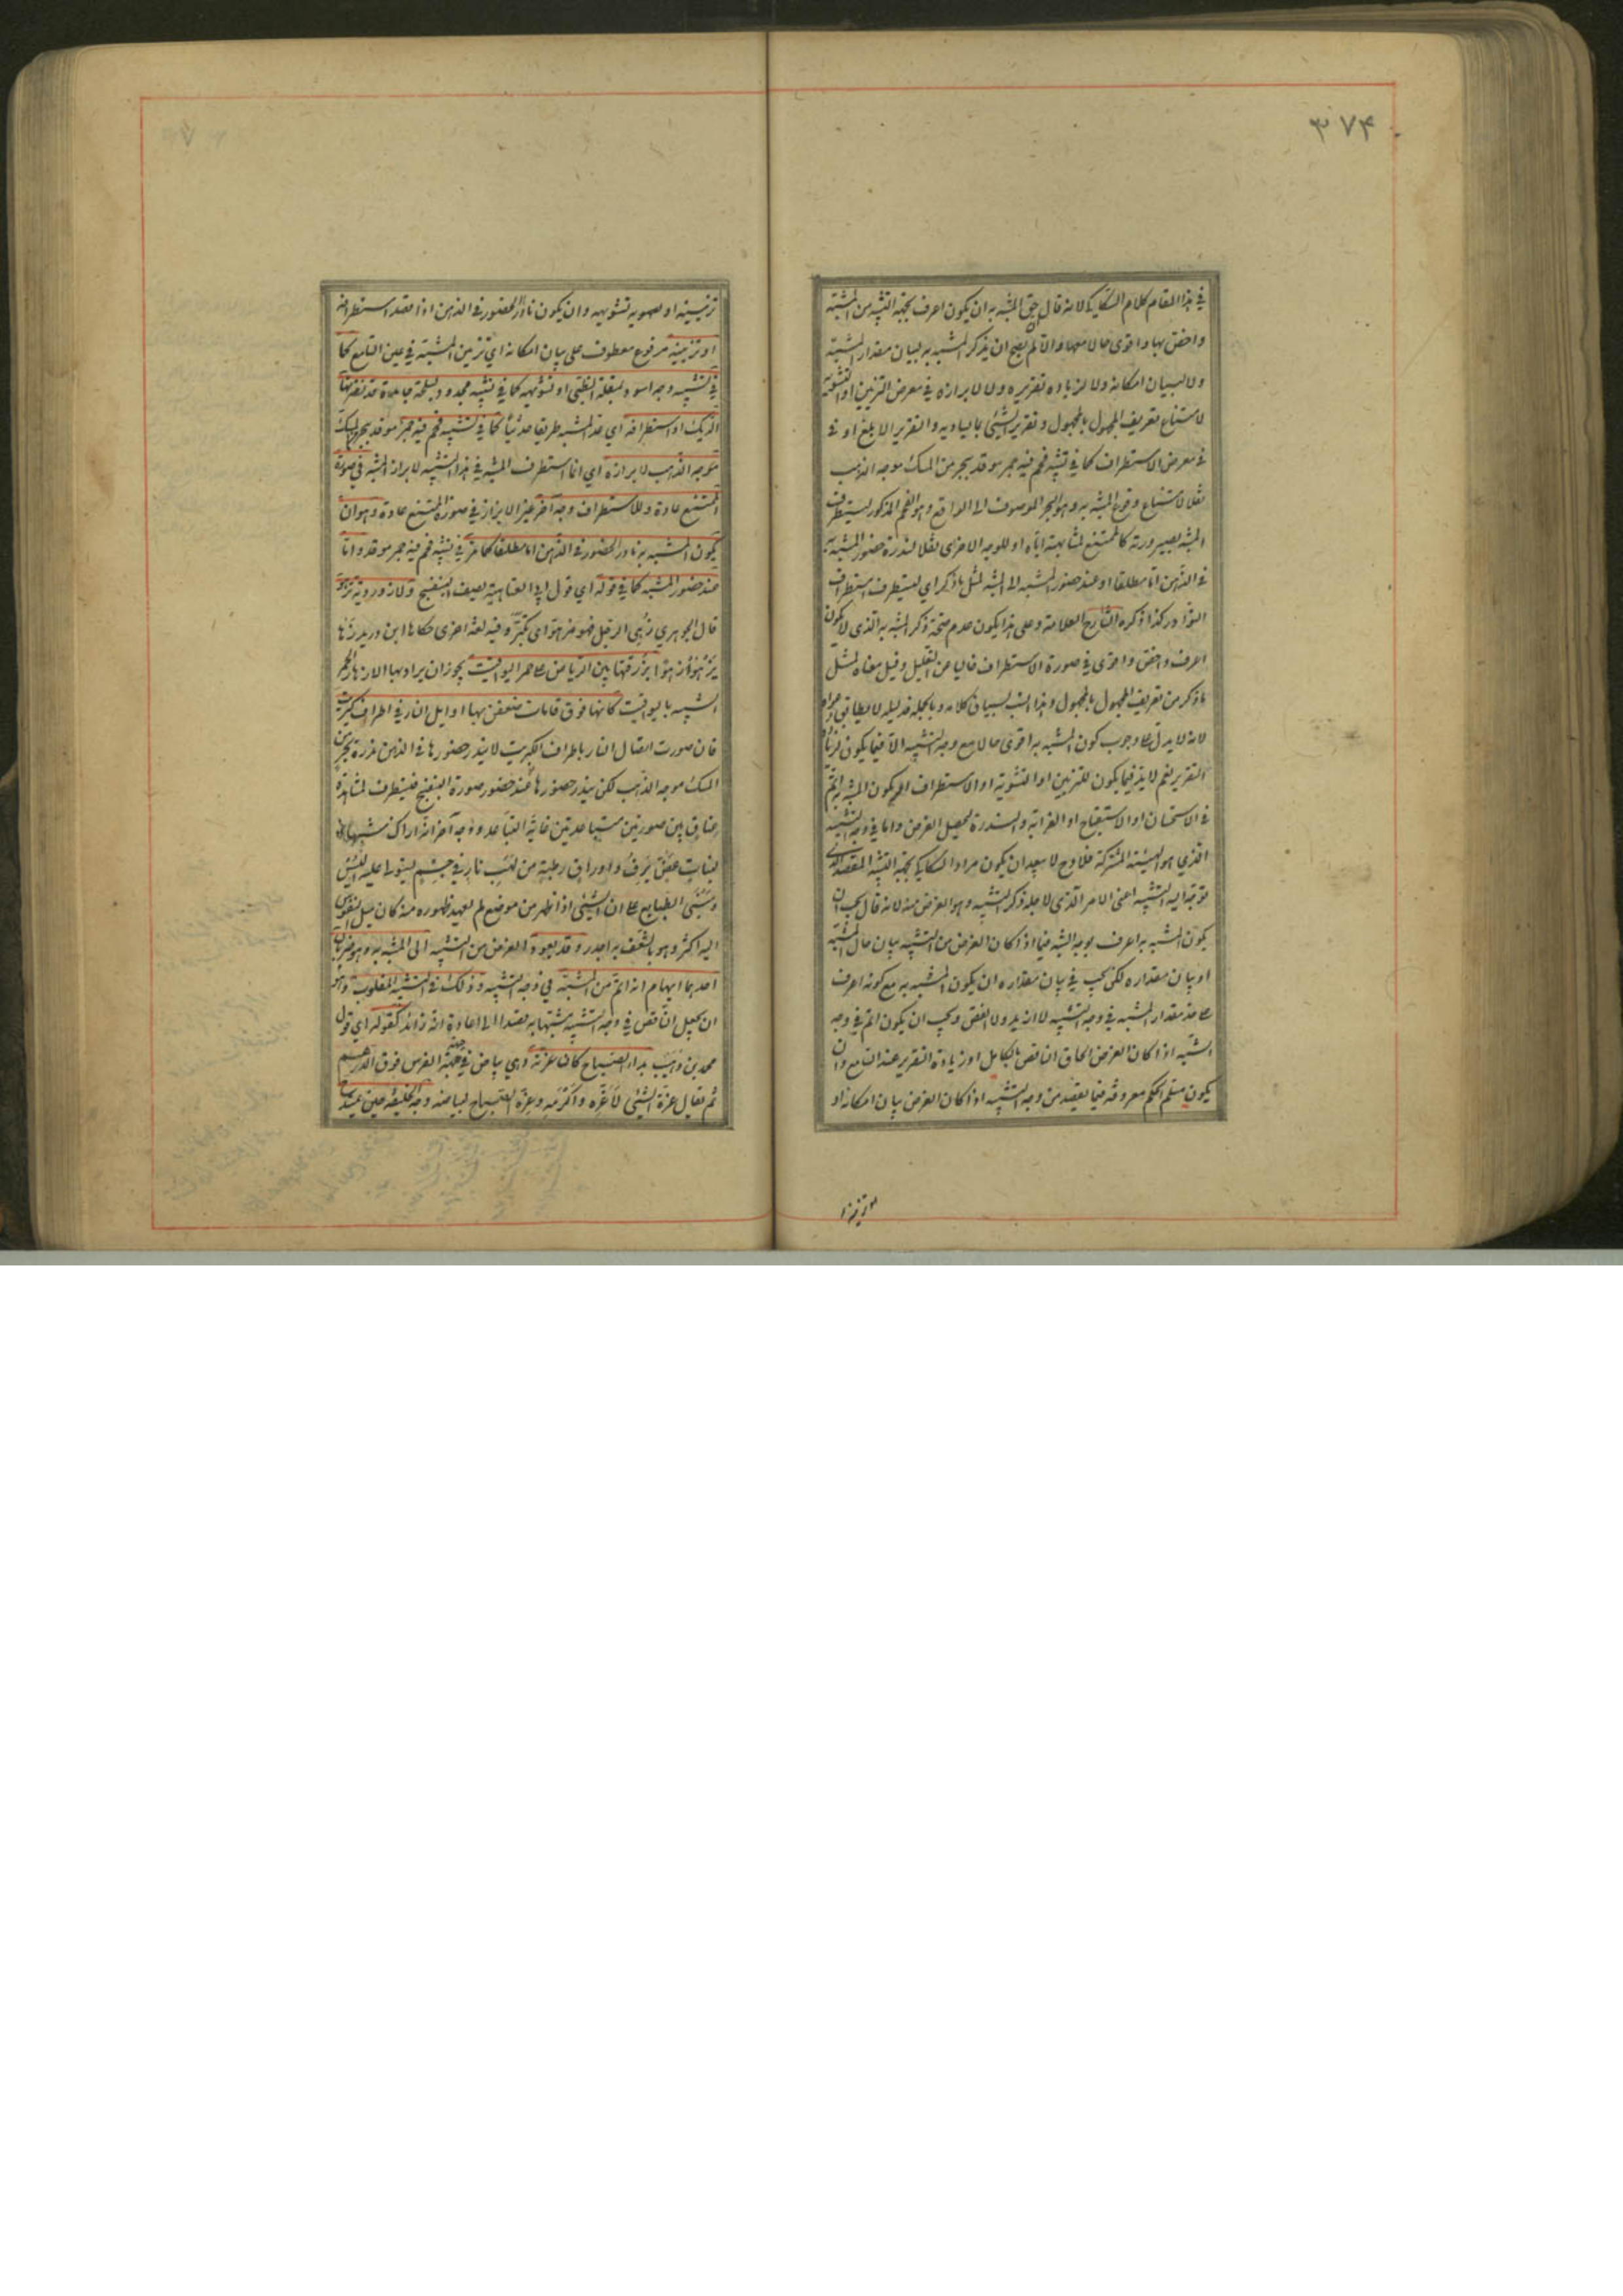 ۳۷۴
في هذا المقام كلام السكاكي لانه قال حق المشبه به ان يكون اعرف بجهة التشبيه من المشبه
واخص بها واقوى حالا معها والا لم يصح ان يذكر المشبه به لبيان مقدار المشبه
ولا لبيان امكانه ولا لزيادة تقريره ولا لابرازه في معرض التزيين او التشويه
لامتناع تعريف المجهول بالمجهول وتقرير الشيئ بما يساويه والتقرير الابلغ او في
في معرض الاستطراف كما في تشبيه فحم فيه جمر موقد ببحر من المسك موجه الذهب
نقلا لامتناع وقوع المشبه به وهو البحر الموصوف الى الواقع وهو الفحم المذكور ليستطرف
المشبه بصيرورته كالممتنع لمشابهته اياه او للوجه الاخر اى نقلا لندرة حضور المشبه به
في الذهن اما مطلقا او عند حضور المشبه الى المشبه لمثل ما ذكر اي ليستطرف استطراف
النوادر كذا ذكره الشارح العلامة وعلى هذا يكون عدم صحة ذكر المشبه به الذي لا يكون
اعرف واخص واقوى في صورة الاستطراف خاليا عن التعليل وقيل معناه لمثل
ما ذكر من تعريف المجهول بالمجهول وهذا انسب لسياق كلامه وبالجملة فدليله لا يطابق دعواه
لانه لا يدل على وجوب كون المشبه به اقوى حالا مع وجه التشبيه الا فيما يكون لزيادة
التقرير نعم لابد فيما يكون للتزيين او التشويه او الاستطراف ان يكون المشبه به اتم
في الاستحسان او الاستقباح او الغرابة والندرة ليحصل الغرض واما في وجه التشبيه
الذي هو الهيئة المشتركة فلا وح لا يبعد ان يكون مراد السكاكي بجهة التشبيه المقصد الذي
توجه اليه التشبيه اعنى الامر الذى لاجله ذكر التشبيه وهو الغرض منه لانه قال يجب ان
يكون المشبه به اعرف بوجه الشبه فيما اذا كان الغرض من التشبيه بيان حال المشبه
او بيان مقداره لكن يجب في بيان مقداره ان يكون المشبه به مع كونه اعرف
على حد مقدار المشبه في وجه التشبيه لا ازيد ولا انقص ويجب ان يكون اتم في وجه
التشبيه اذا كان الغرض الحاق الناقص بالكامل او زيادة التقرير عند السامع وان
يكون مسلم الحكم معروفه فيما يقصد من وجه التشبيه اذا كان الغرض بيان امكانه او
او تزيينه
تزيينه او تشويهه وان يكون نادر الحضور في الذهن اذا قصد استطرافه
او تزيينه مرفوع معطوف على بيان امكانه اي تزيين المشبه في عين السامع كما
في تشبيه وجه اسود بمقلة الظبى او تشويهه كما في تشبيه وجه مجدور بسلحة جامدة قد نقرتها
الديكة او استطرافه اي عد المشبه طريفا حديثا كما في تشبيه فحم فيه جمر موقد ببحر من المسك
موجه الذهب لابرازه اي انما استطرف المشبه في هذا التشبيه لابراز المشبه في صورة
الممتنع عادة وللاستطراف وجه آخر غير الابراز في صورة الممتنع عادة وهو ان
يكون المشبه به نادر الحضور في الذهن اما مطلقا كما مر في تشبيه فحم فيه جمر موقد واما
عند حضور المشبه كما في قوله اي قول ابي العتاهية يصف البنفسج ولازوردية تزهو
قال الجوهري زهى الرجل فهو مزهو اى تكبر وفيه لغة اخرى حكاها ابن دريد زها
يزهو زهوا بزرقتها بين الرياض على حمر اليواقيت يجوز ان يراد بها الازهار الحمر
الشبيه باليواقيت كانها فوق قامات ضعفن بها اوايل النار في اطراف كبريت
فان صورت اتصال النار باطراف الكبريت لا يندر حضورها في الذهن ندرة بحر من
المسك موجه الذهب لكن يندر حضورها عند حضور صورة البنفسج فيستطرف لمشاهدة
عناق بين صورتين متباعدتين غاية التباعد ووجه آخر انه اراك شبيها
لنبات غض يرف واوراق رطبة من لهب نار في جسم يستولى عليه اليبس
ومبنى الطبايع على ان الشيئ اذا ظهر من موضع لم يعهد ظهوره منه كان ميل النفوس
اليه اكثر وهو بالشغف به اجدر وقد يعود الغرض من التشبيه الى المشبه به وهو ضربان
احدهما ايهام انه اتم من المشبه في وجه التشبيه وذلك في التشبيه المقلوب وهو
ان يجعل الناقص في وجه التشبيه مشبها به قصدا الى ادعاء انه زائد كقوله اي قول
محمد بن وهيب بدا الصباح كان غرته وهي بياض في جبهة الفرس فوق الدرهم
ثم يقال غرة الشيئ لاغره واكرمه وغرة الصباح لبياضه وجه الخليفة حين يمتدح